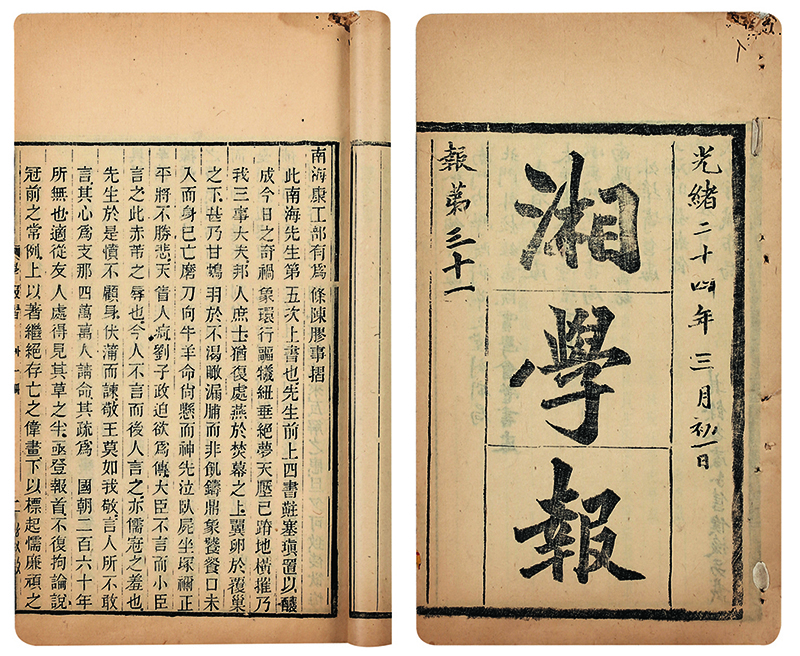 光緒二十四年三月初一日
湘學報
報第三十一
南海康工部有爲條陳膠事摺
此南海先生第五次上書也先生前上四書黈塞瑱置以釀
成今日之奇禍象環行軀犧紐垂絕夢天壓已踣地橫摧乃
我三事大夫邦人庶士猶復處燕於焚幕之上翼卵於覆巢
之下甚乃甘鴆羽於不渴瞰漏脯而非飢鑄鼎象饕餮口未
入而身已亡磨刀向牛羊命尙懸而神先泣臥屍坐塚禰正
平將不勝悲天嘗人劉子政迫欲爲傳大臣不言而小臣
言之此赤芾之辱也今人不言而後人言之亦儒冠之羞也
先生於是憤不顧身伏蒲而諫敬王莫如我敬言人所不敢
言其心爲支那四萬萬人請命其疏爲 國朝二百六十年
所無也適從友人處得見其草之半亟登報首不復拘論說
冠前之常例上以著繼絕存亡之偉畫下以標起懦廉頑之